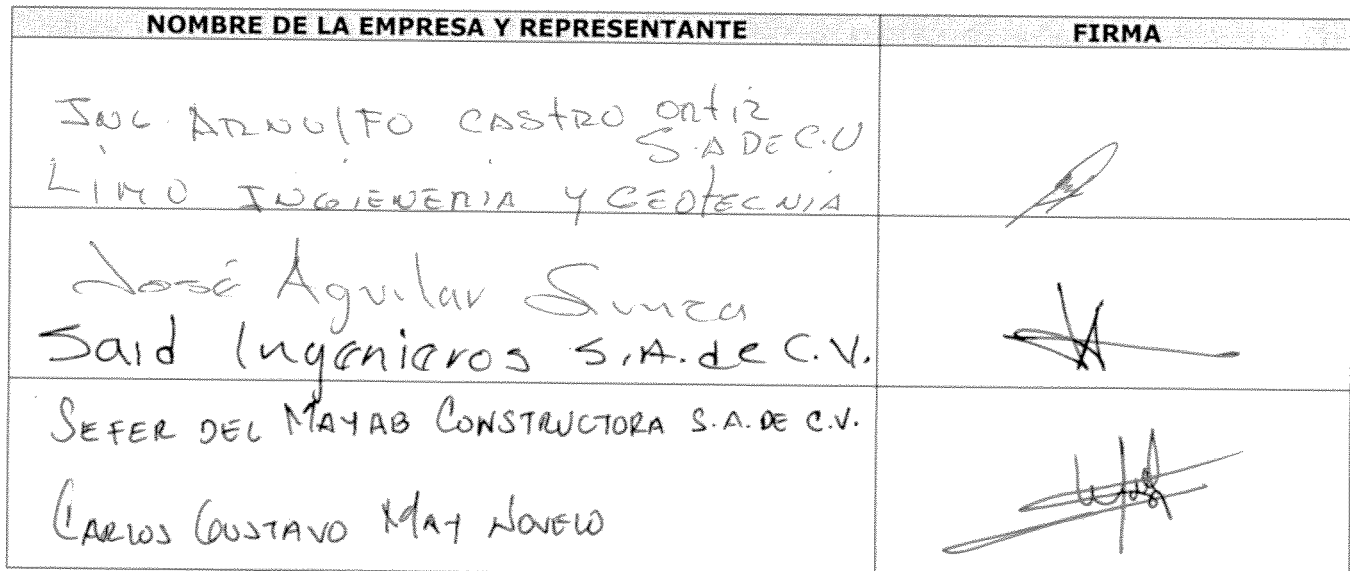 NOMBRE DE LA EMPRESA Y REPRESENTANTE
FIRMA
ING. ARNULFO CASTRO Ortiz
S.A DE C.V
LIMO INGIENERIA Y GEOTECNIA
José Aguilar Sunza
Said Ingenieros S.A. de C.V.
SEFER DEL MAYAB CONSTRUCTORA S.A. DE C.V.
CARLOS GUSTAVO MAY NOVELO